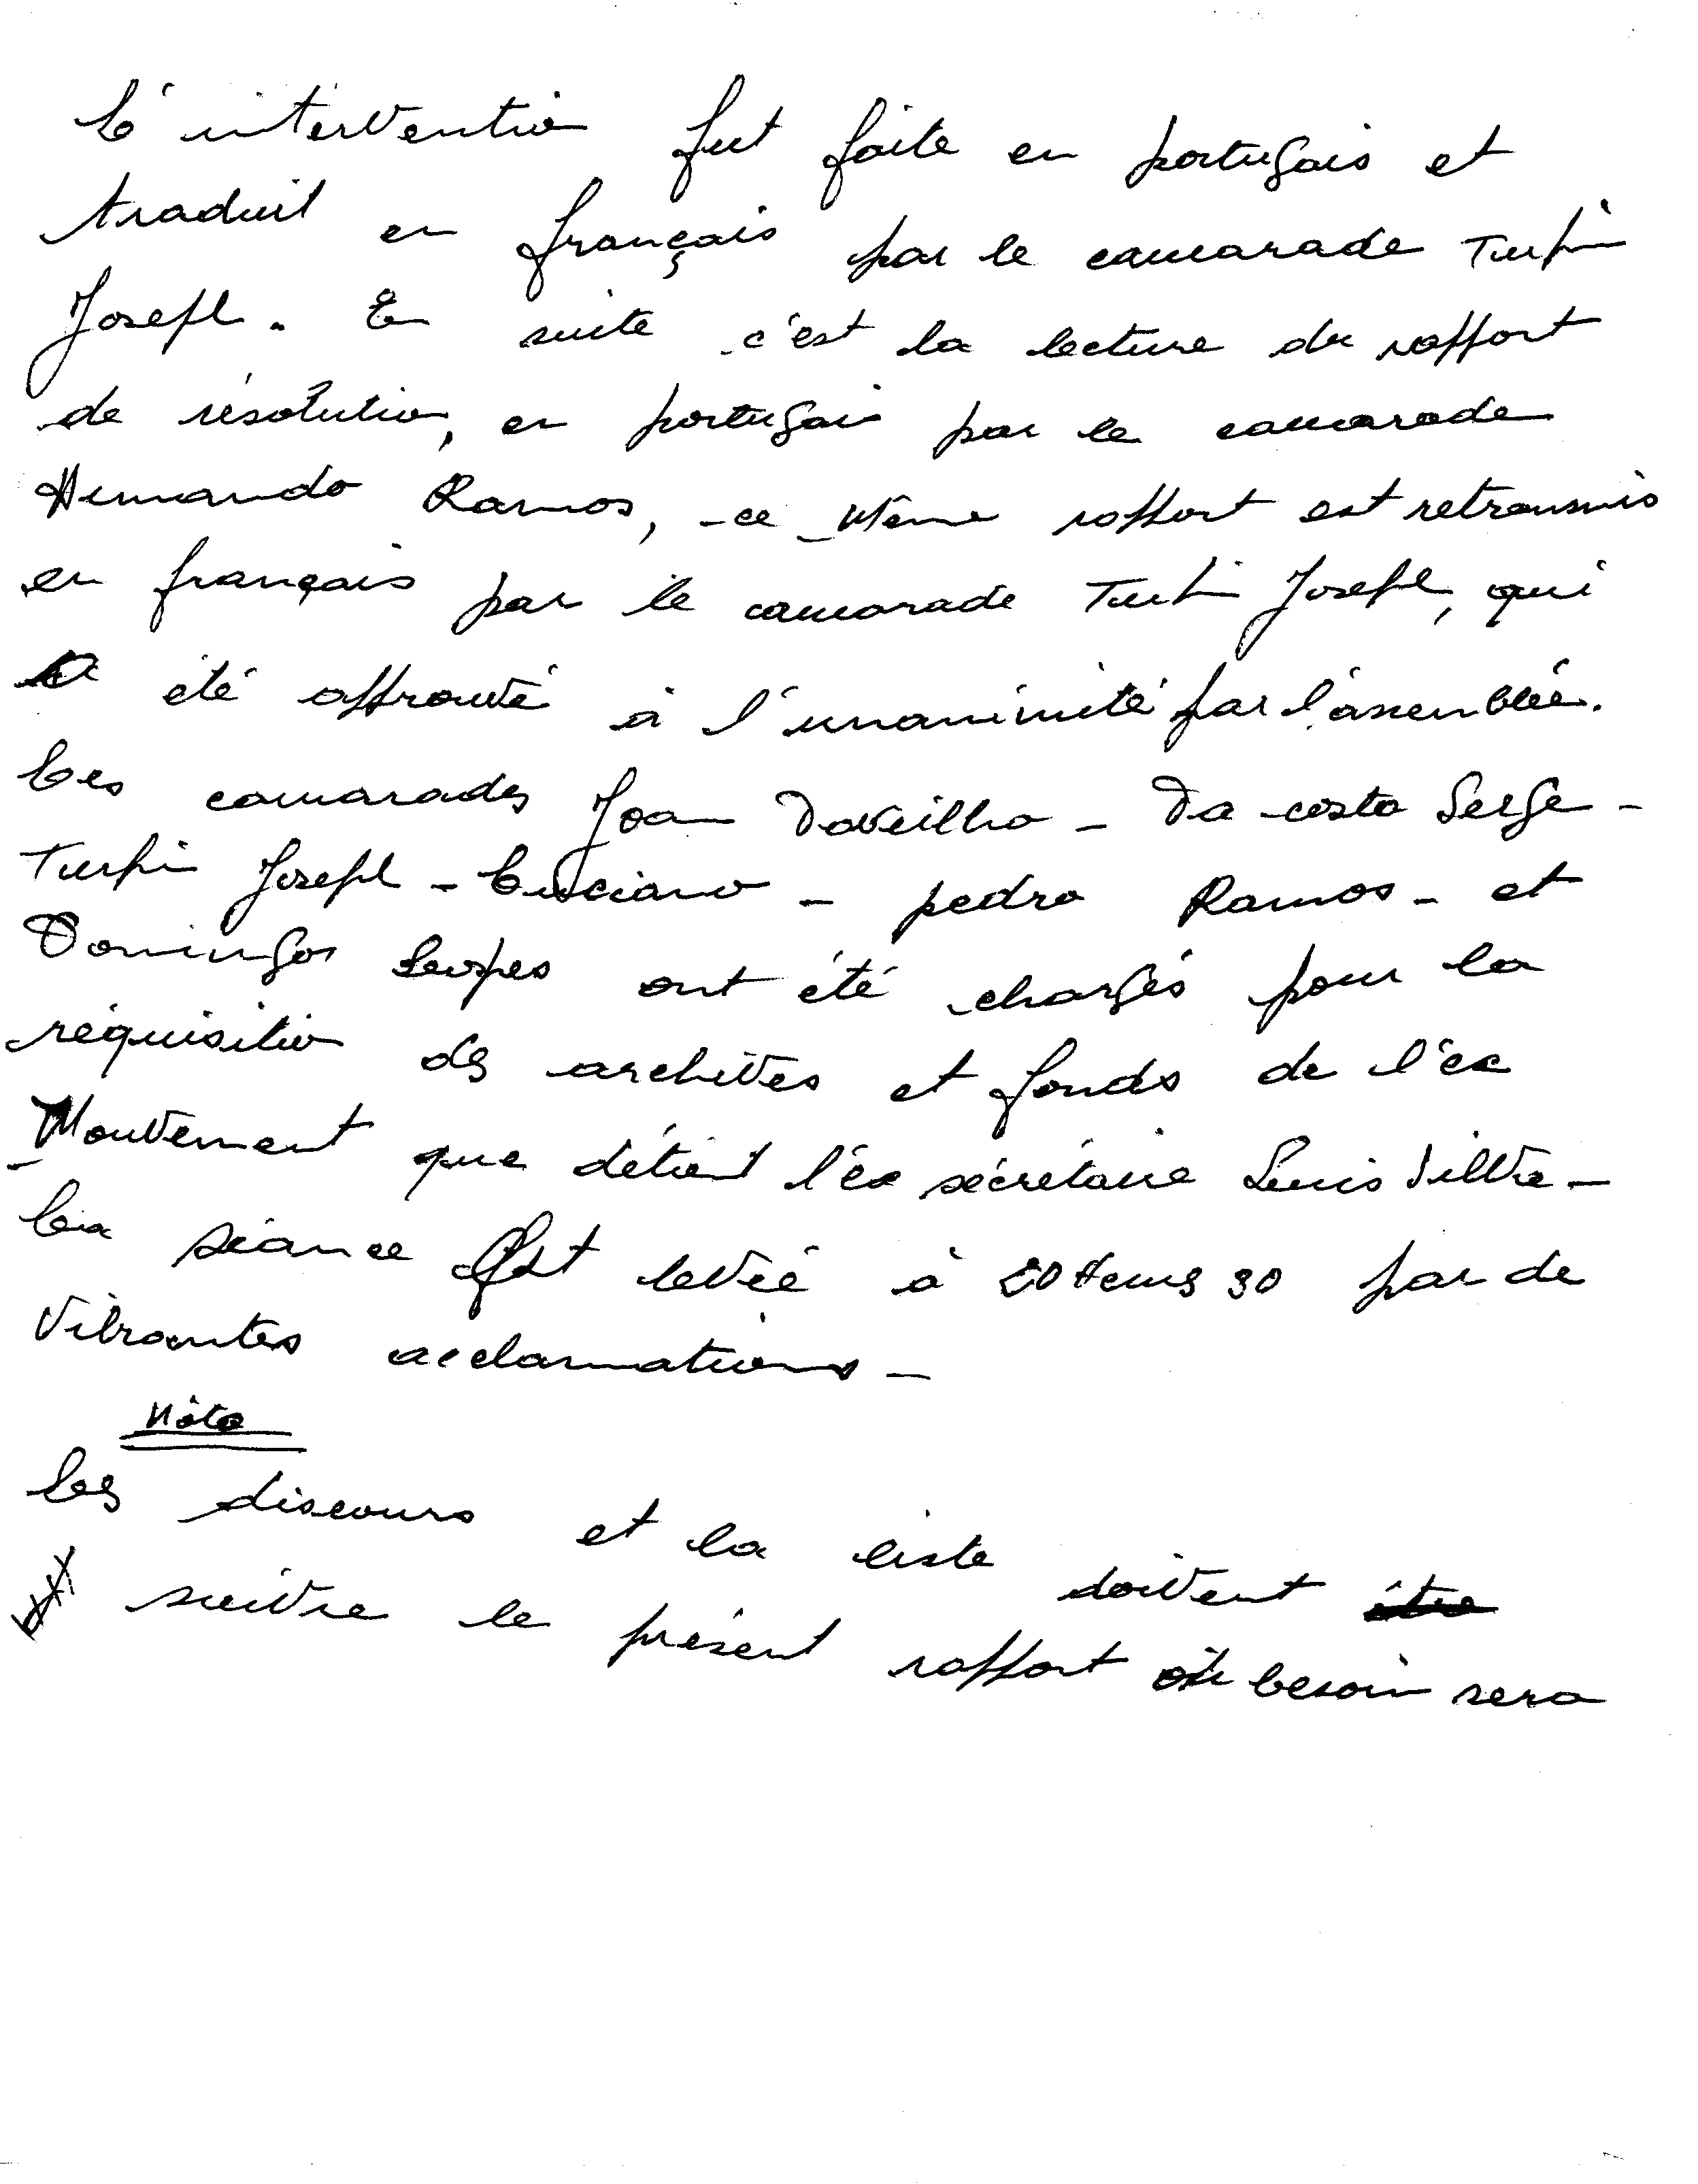 L'intervention fut faite en portugais et
traduit en français par le camarade Turpin
Joseph. En suite c'est la lecture du rapport
de résolution, en portugais par le camarade
Hernando Ramos, ce même rapport est retransmis
en français par le camarade Turpin Joseph, qui
a été approuvé à l'unanimité par l'assemblée.
Les camarades Joan Daveilho - Da costa Serge -
Turpin Joseph - Luciano - pedro Ramos - et
Domingos Lopes ont été chargés pour la
réquisition des archives et fonds de l'ex
Mouvement que détient l'ex sécrétaire Luis Silva -
La séance est levée à 20 Heures 30 par de
Vibrantes acclamations -
Nôte
Les discours et la liste doivent
suivre le présent rapport où besoin sera